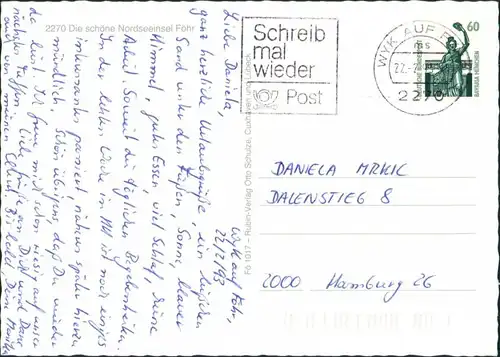 2270 Die schöne Nordseeinsel Föhr
Wyk auf Föhr,
22/2/93
Liebe Daniela,
ganz herzliche Urlaubsgrüße, ein bißchen
Sand unter den Füßen, Sonne, blauer
Himmel, gutes Essen, viel Schlaf, keine
Arbeit. Soweit die täglichen Begebenheiten.
In der letzten Woche in HH ist noch einiges
interessantes passiert, näheres später hierzu
mündlich. Schön übrigens, daß Du wieder
da bist! Ich freue mich schon riesig auf unser
nächstes Treffen. Liebe Grüße an Dich und
auch von meinen Eltern. Bis bald, Deine
Fö 1017 – Rubin-Verlag Otto Schulze, Cuxhaven und Lübeck
Schreib
mal
wieder
Post
WYK AUF F
22.-2
2270
60
DEUTSCHE BUNDESPOST
BAVARIA MÜNCHEN
DANIELA MRKIC
DALENSTIEG 8
2000 Hamburg 26